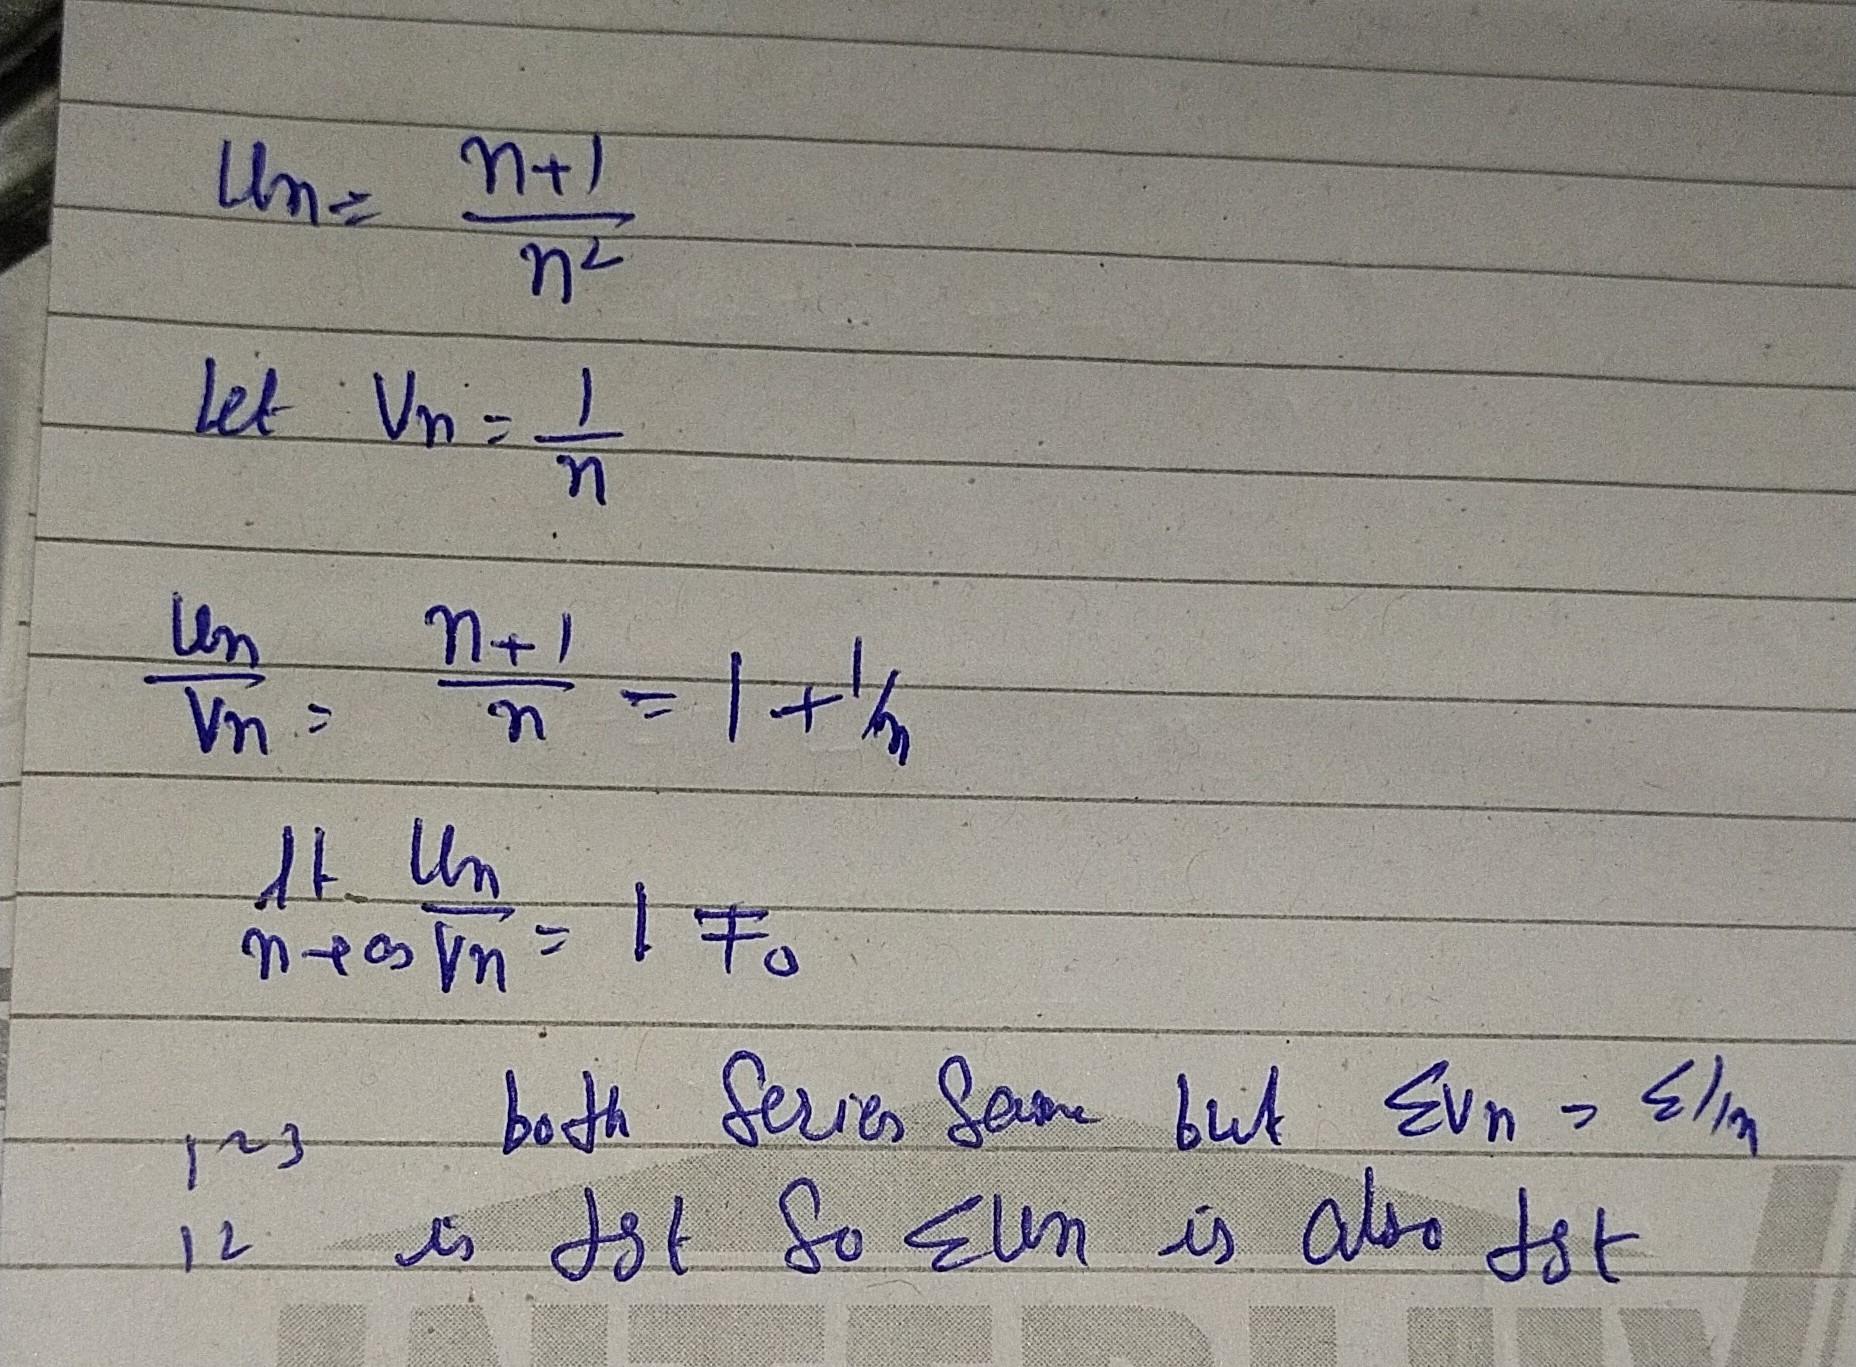 Un = n+1 / n²
Let Vn = 1 / n
Un / Vn = n+1 / n = 1 + 1/n
lt n→∞ Un / Vn = 1 ≠ 0
123 both Series Same but ΣVn = Σ1/n
12 is dgt So ΣUn is also dgt